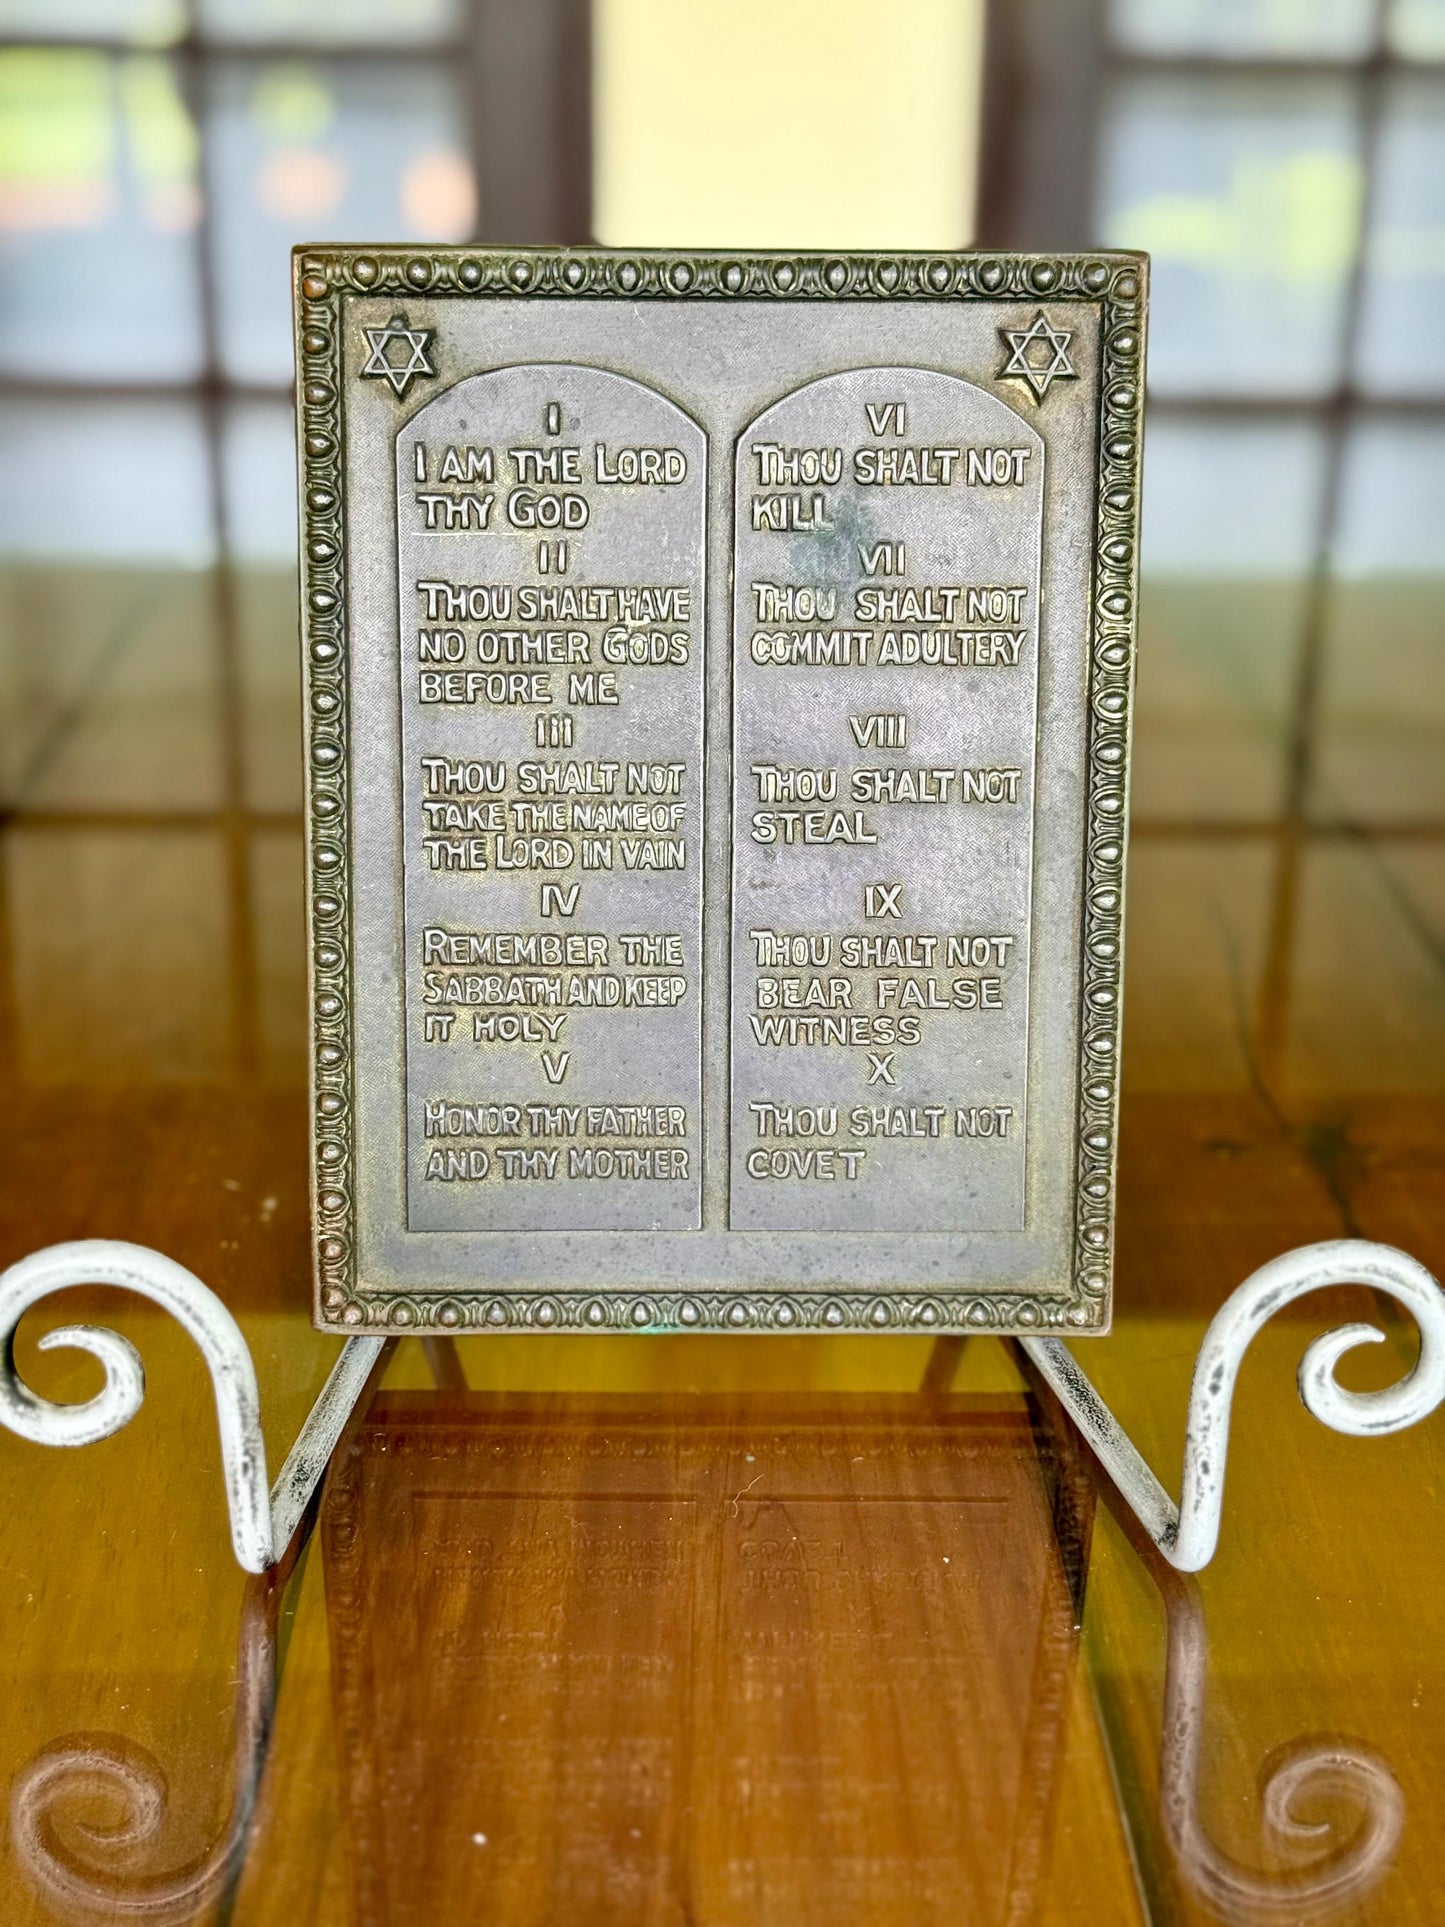 I
I AM THE LORD
THY GOD
II
THOU SHALT HAVE
NO OTHER GODS
BEFORE ME
III
THOU SHALT NOT
TAKE THE NAME OF
THE LORD IN VAIN
IV
REMEMBER THE
SABBATH AND KEEP
IT HOLY
V
HONOR THY FATHER
AND THY MOTHER
VI
THOU SHALT NOT
KILL
VII
THOU SHALT NOT
COMMIT ADULTERY
VIII
THOU SHALT NOT
STEAL
IX
THOU SHALT NOT
BEAR FALSE
WITNESS
X
THOU SHALT NOT
COVET